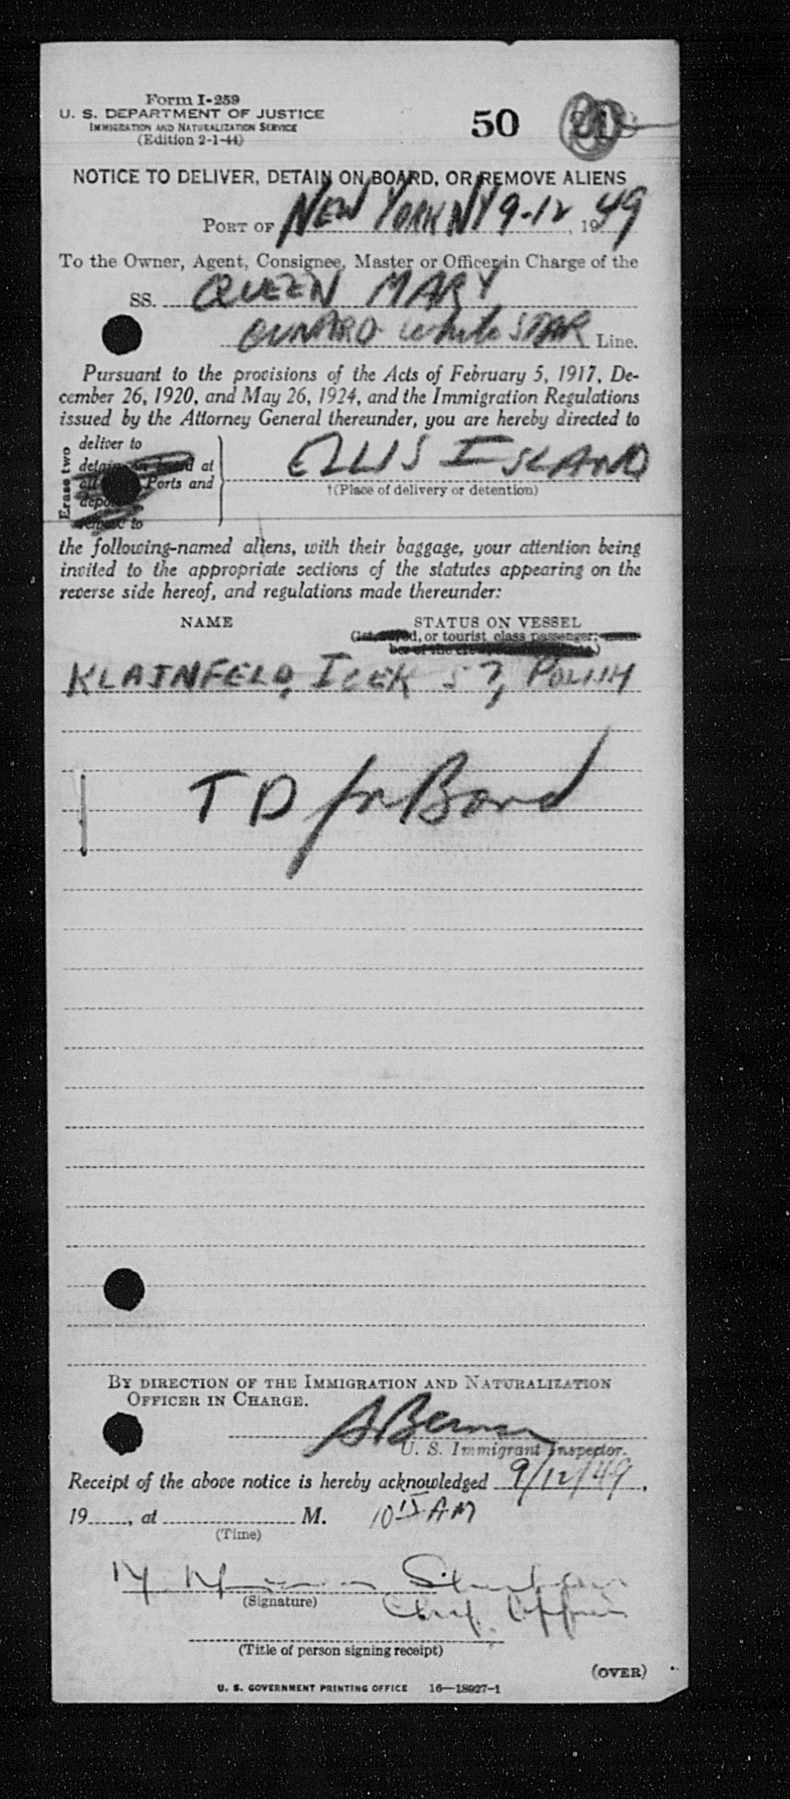 Form I-259
U. S. DEPARTMENT OF JUSTICE
IMMIGRATION AND NATURALIZATION SERVICE
(Edition 2-1-44)
50
NOTICE TO DELIVER, DETAIN ON BOARD, OR REMOVE ALIENS
PORT OF NEW YORK NY 9-12, 1949
To the Owner, Agent, Consignee, Master or Officer in Charge of the
SS. QUEEN MARY
CUNARD White STAR Line.
Pursuant to the provisions of the Acts of February 5, 1917, De-
cember 26, 1920, and May 26, 1924, and the Immigration Regulations
issued by the Attorney General thereunder, you are hereby directed to
Erase two
deliver to
detain on board at
all Ports and
ELLIS ISLAND
†(Place of delivery or detention)
to
the following-named aliens, with their baggage, your attention being
invited to the appropriate sections of the statutes appearing on the
reverse side hereof, and regulations made thereunder:
NAME
STATUS ON VESSEL
or tourist class passenger;
KLAJNFELD, ICEK 57, POLISH
TD for Bond
BY DIRECTION OF THE IMMIGRATION AND NATURALIZATION
OFFICER IN CHARGE.
U. S. Immigrant Inspector.
Receipt of the above notice is hereby acknowledged 9/12/49,
19____, at ____ M. 10 15 AM
(Time)
(Signature)
Chief Officer
(Title of person signing receipt)
(OVER)
U. S. GOVERNMENT PRINTING OFFICE 16—18927-1